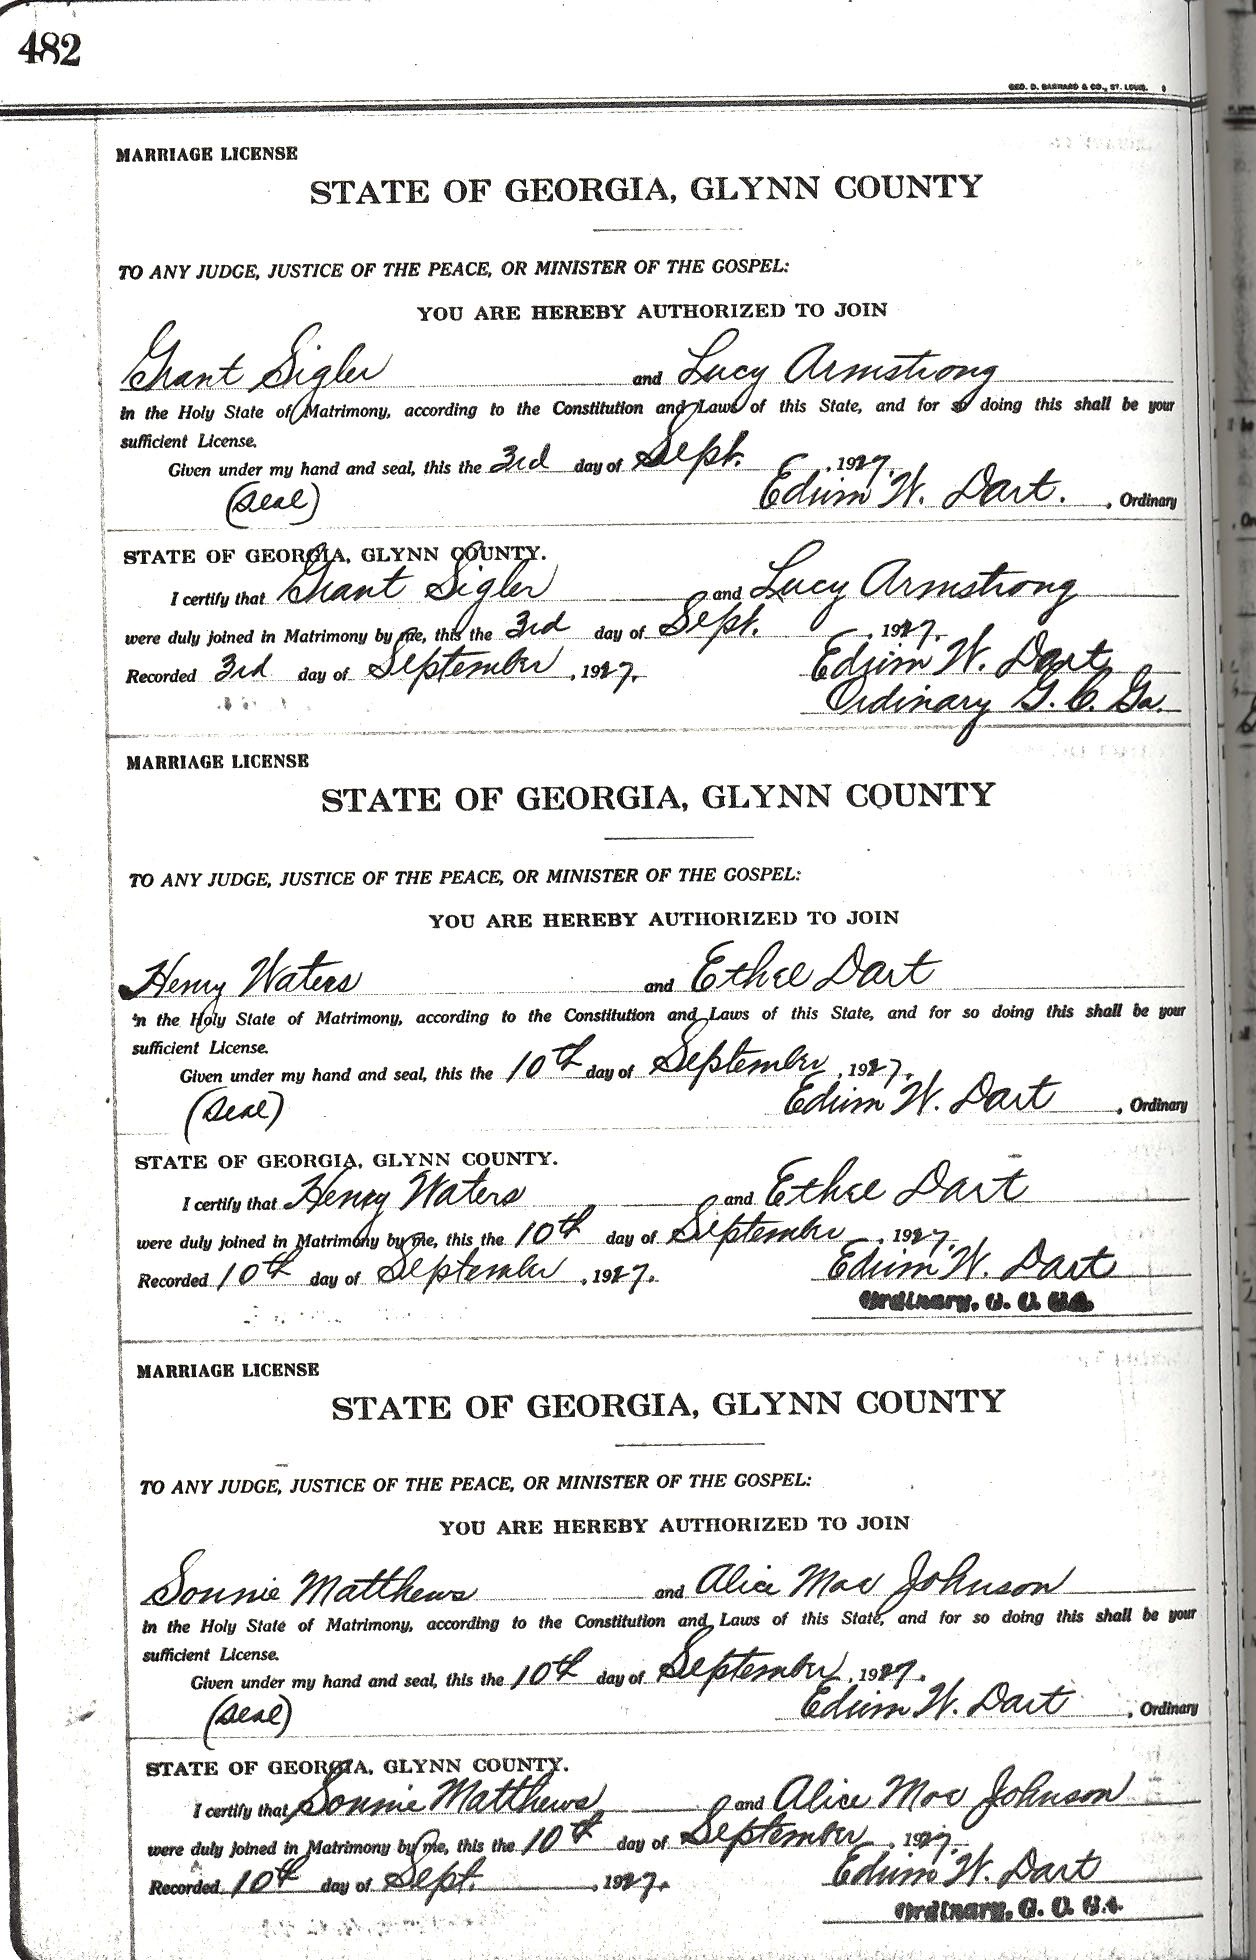 482
GEO. D. BARNARD & CO., ST. LOUIS.
MARRIAGE LICENSE
STATE OF GEORGIA, GLYNN COUNTY
TO ANY JUDGE, JUSTICE OF THE PEACE, OR MINISTER OF THE GOSPEL:
YOU ARE HEREBY AUTHORIZED TO JOIN
Grant Sigler and Lucy Armstrong
in the Holy State of Matrimony, according to the Constitution and Laws of this State, and for so doing this shall be your
sufficient License.
Given under my hand and seal, this the 3rd day of Sept. , 1927.
(Seal) Edwin W. Dart. , Ordinary
STATE OF GEORGIA, GLYNN COUNTY.
I certify that Grant Sigler and Lucy Armstrong
were duly joined in Matrimony by me, this the 3rd day of Sept. , 1927.
Recorded 3rd day of September , 1927. Edwin W. Dart
Ordinary G. C. Ga.
MARRIAGE LICENSE
STATE OF GEORGIA, GLYNN COUNTY
TO ANY JUDGE, JUSTICE OF THE PEACE, OR MINISTER OF THE GOSPEL:
YOU ARE HEREBY AUTHORIZED TO JOIN
Henry Waters and Ethel Dart
in the Holy State of Matrimony, according to the Constitution and Laws of this State, and for so doing this shall be your
sufficient License.
Given under my hand and seal, this the 10th day of September , 1927.
(Seal) Edwin W. Dart , Ordinary
STATE OF GEORGIA, GLYNN COUNTY.
I certify that Henry Waters and Ethel Dart
were duly joined in Matrimony by me, this the 10th day of September , 1927.
Recorded 10th day of September , 1927. Edwin W. Dart
Ordinary, G. C. Ga.
MARRIAGE LICENSE
STATE OF GEORGIA, GLYNN COUNTY
TO ANY JUDGE, JUSTICE OF THE PEACE, OR MINISTER OF THE GOSPEL:
YOU ARE HEREBY AUTHORIZED TO JOIN
Sonnie Matthews and Alice Mae Johnson
in the Holy State of Matrimony, according to the Constitution and Laws of this State, and for so doing this shall be your
sufficient License.
Given under my hand and seal, this the 10th day of September , 1927.
(Seal) Edwin W. Dart , Ordinary
STATE OF GEORGIA, GLYNN COUNTY.
I certify that Sonnie Matthews and Alice Mae Johnson
were duly joined in Matrimony by me, this the 10th day of September , 1927.
Recorded 10th day of Sept. , 1927. Edwin W. Dart
Ordinary, G. C. Ga.